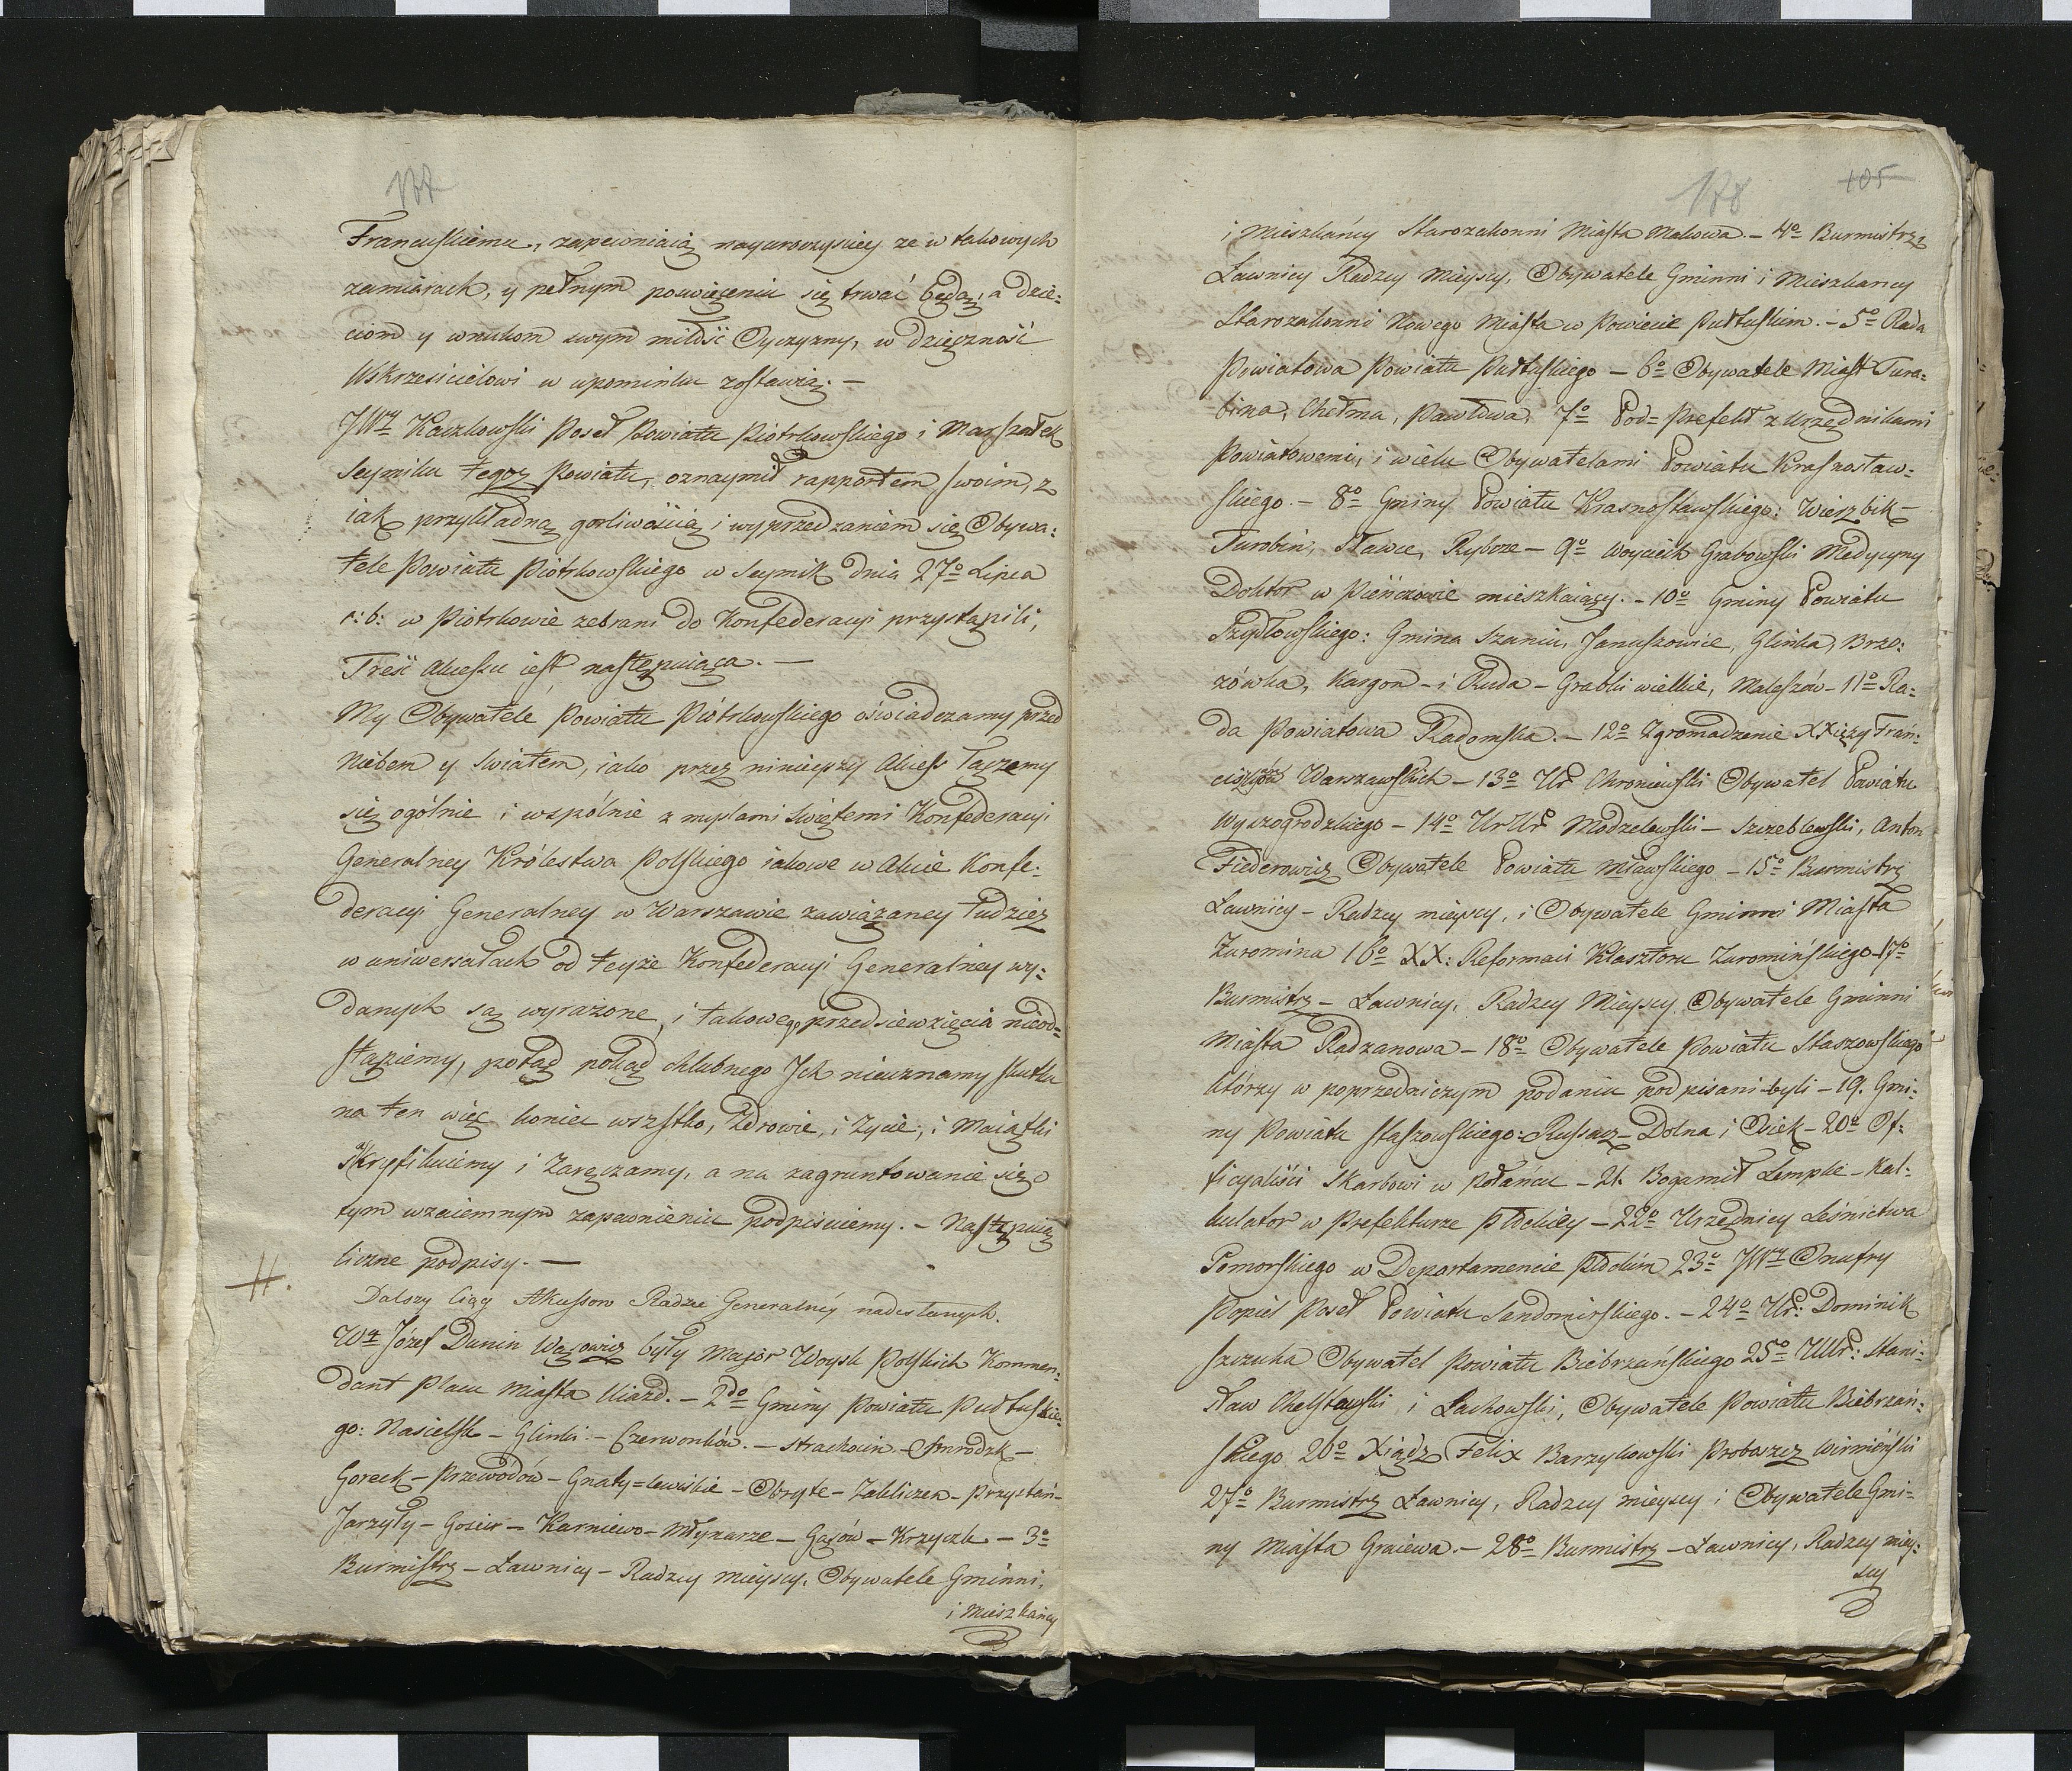 177
Francuskiemu, zapewniaią nayuroczyściey ze w takowych
zamiarach, y pełnym poswięceniu się trwać będą; a dzie:
ciom y wnukom swym miłość Oyczyzny, w dzięczność
Wskrzesicielowi w upominku zostawią. —
JWy Kaczkowski Poseł Powiatu Piotrkowskiego i Marszałek
Seymiku tegoz Powiatu, oznaymił rapportem swoim, z
iak przykładną gorliwością i wyprzedzaniem się Obywa:
tele Powiatu Piotrkowskiego w Seymik dnia 27º Lipca
r: b: w Piotrkowie zebrani do Konfederacyi przystąpili,
Treść Akcessu iest następuiąca. —
My Obywatele Powiatu Piotrkowskiego oświadczamy przed
Niebem y Swiatem, iako przez ninieyszy Akcess łączemy
się ogólnie i wspólnie z myslami Swiętemi Konfederacyi
Generalney Królestwa Polskiego iakowe w Akcie Konfe:
deracyi Generalney w Warszawie zawiązaney tudziez
w uniwersałach od teyże Konfederacyi Generalney wy:
danych są wyrażone, i takowego przedsiewzięcia nieod=
stąpiemy, potąd pokąd chlubnego Jch nieuznamy skutku
na ten więc koniec wszstko, Zdrowie, i Zycie, i Maiątki
sakryfikuiemy i Zaręczamy, a na zagruntowanie się o
tym wzaiemnym zapewnieniu podpisuiemy. — Następuią
liczne podpisy. —
#.
Dalszy Ciąg Akcessow Radzie Generalnéy nadesłanych.
Wy Józef Dunin Wąsowicz były Major Woysk Polskich Kommen:
dant placu Miasta Uiazd. — 2do Gminy Powiatu Pułtuskie-
go: Nasielsk — Glinki — Czerwonków. — Strachocin — Smrodzk —
Goreck — Przewodów — Gnaty=lewiskie — Obryte — Zabliczen — Przystań —
Jarzyły — Gościr — Karniewo — Młynarze — Gąsów — Krzyczk — 3º
Burmistrz — Ławnicy — Radzcy mieyscy, Obywatele Gminni,
i Mieszkańcy
178
105
i Mieszkańcy Starozakonni Miasta Makowa. — 4º Burmistrz
Ławnicy Radzcy Mieyscy, Obywatele Gminni i Mieszkancy
Starozakonni Nowego Miasta w Powiecie Pułtuskim. — 5º Rada
Powiatowa Powiatu Pułtuskiego — 6º Obywatele Miast Tura=
bina, Chełma, Pawłowa, 7º Pod=Prefekt z Urzędnikami
Powiatowemi, i wielu Obywatelami Powiatu Krasnostaw-
skiego. — 8º Gminy Powiatu Krasnostawskiego: Wierzbik —
Turobin, Stawce, Rybcze — 9º Woyciech Grabowski Medycyny
Doktor w Pieńczowie mieszkaiący. — 10º Gminy Powiatu
Szydłowskiego: Gmina Szaniu, Januszowice, Glinka, Brze:
zówka, Kargon — i Ruda — Grabki wielkie, Maleszów — 11º Ra:
da Powiatowa Radomska. — 12º Zgromadzenie XXięzy Fran:
ciszkanów Warszawskich — 13º Ur Chroniewski Obywatel Powiatu
Wyszogrodzkiego — 14º UrUr Modzelewski — Szczeblewski, Anton
Fiederowicz Obywatele Powiatu Mławskiego — 15º Burmistrz
Ławnicy — Radzcy mieyscy, i Obywatele Gminni Miasta
Zuromina 16º XX: Reformaci Klasztoru Zuromińskiego — 17º
Burmistrz — Ławnicy, Radzcy Mieyscy Obywatele Gminni
Miasta Radzanowa — 18º Obywatele Powiatu Staszowskiego
którzy w poprzedniczym podaniu podpisani byli — 19. Gmi-
ny Powiatu Staszowskiego: Rusacz — Dolna i Osiek — 20º Of:
ficyaliści Skarbowi w Połańcu — 21. Bogumił Lempke — Kal:
kulator w Prefekturze Płockiey — 22º Urzędnicy Leśnictwa
Pomorskiego w Departamencie Płockim 23º JWy Onufry
Popiel Poseł Powiatu Sandomirskiego. — 24º Ur: Dominik
Szczuka Obywatel Powiatu Biebrzańskiego 25º UUr: Stani-
sław Chełstowski i Lachowski, Obywatele Powiatu Biebrzań:
skiego 26º Xiądz Felix Barzykowski Proboszcz
27º Burmistrz Ławnicy, Radzcy mieyscy i Obywatele Gmi-
ny Miasta Graiewa. — 28º Burmistrz — Ławnicy, Radzcy miey:
scy